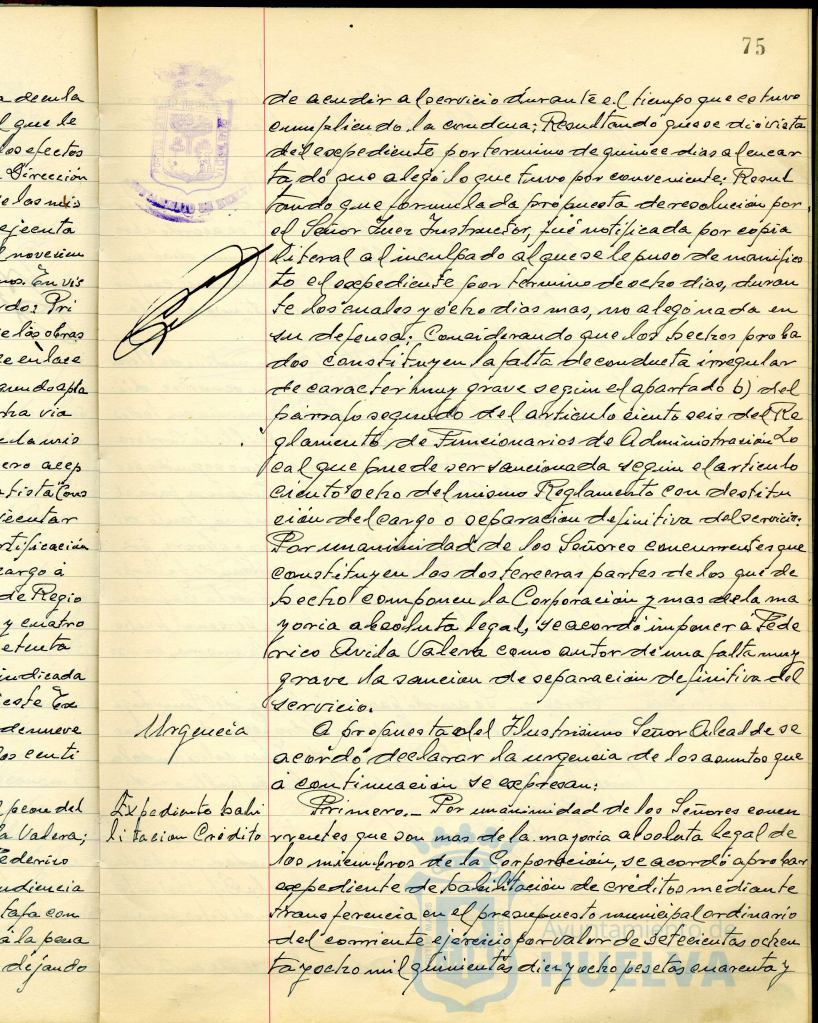 75
a decula
l que le
los efectos
Dirección
e los mis
ejecuta
l novecien
nos. En vis
rdo: Pri
e las obras
ce enlace
tra via
ero acep
tista Cons
jecutar
rtificación
cargo á
de Regio
y cuatro
etenta
indicada
este Ex
denueve
los centi
peon del
la Valera;
ederico
udiencia
tafa con
á la pena
dejando
de acudir al servicio durante el tiempo que estuvo
cumpliendo la condena; Resultando que se dió vista
del expediente por termino de quince dias al encar
tado que alegó lo que tuvo por conveniente; Resul
tando que formulada propuesta de resolución por
el Señor Juez Instructor, fué notificada por copia
literal al inculpado al que se le puso de manifies
to el expediente por termino de ocho dias, duran
te los cuales y ocho dias mas, no alegó nada en
su defensa; Considerando que los hechos proba
dos constituyen la falta de conducta irregular
de caracter muy grave segun el apartado b) del
párrafo segundo del articulo ciento seis del Re
glamento de Funcionarios de Administración Lo
cal que puede ser sancionada segun el articulo
ciento ocho del mismo Reglamento con destitu
ción del cargo o separación definitiva del servicio.
Por unanimidad de los Señores concurrentes que
constituyen las dos terceras partes de los que de
hecho componen la Corporación y mas de la ma
yoria absoluta legal, se acordó imponer a Fede
rico Avila Valera como autor de una falta muy
grave la sancion de separación definitiva del
servicio.
Urgencia
A propuesta del Ilustrisimo Señor Alcalde se
acordó declarar la urgencia de los asuntos que
á continuación se expresan:
Expediente habi
litacion Crédito
Primero.- Por unanimidad de los Señores concu
rrentes que son mas de la mayoria absoluta legal de
los miembros de la Corporación, se acordó aprobar
expediente de habilitación de créditos mediante
transferencia en el presupuesto municipal ordinario
del corriente ejercicio por valor de setecientas ochen
ta y ocho mil quinientas diez y ocho pesetas cuarenta y
Ayuntamiento de
HUELVA